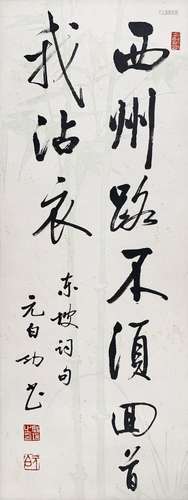 西州路不须回首
我沾衣
东坡词句
元白功书